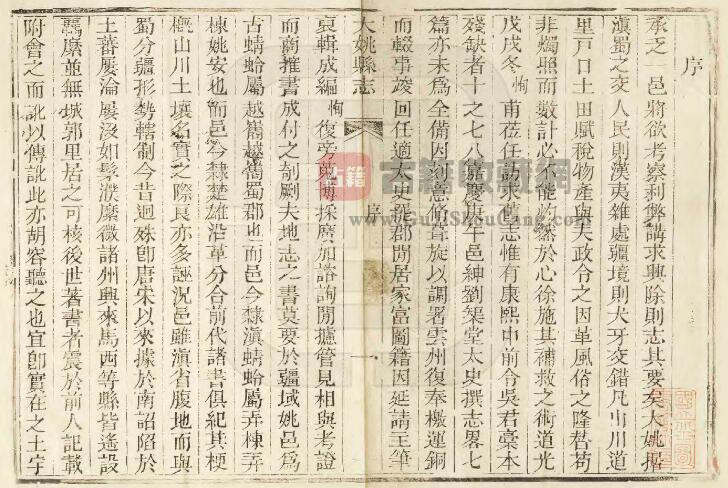 序
承乏一邑將欲考察利弊講求興除則志其要矣大姚據
滇蜀之交人民則漢夷雜處疆境則犬牙交錯凡山川道
里戸口土田賦稅物產與夫政令之因革風俗之隆替苟
非燭照而數計必不能瞭然於心徐施其補救之術道光
戊戌冬恂甫莅任訪求舊志惟有康熙中前令吳君
殘缺者十之七八嘉慶午邑紳劉築堂太史撰志畧七
篇亦未爲全備因刻意脩旋以調署雲州復奉檄運銅
而輟事竣回任適太史罷郡閒居家富圖籍因延請主筆
大姚縣志
序
一
裒輯成編恂復旁蒐博採廣加諮詢閒攄管見相與考證
而商搉書成付之剞劂夫地志之書莫要於疆域姚邑爲
古蜻蛉屬越嶲越嶲蜀郡也而邑今隸滇蜻蛉屬弄棟弄
棟姚安也而邑今隸楚雄沿革分合前代諸書俱紀其梗
槪山川土壤名實之際良亦多誣況邑雖滇省腹地而與
蜀分疆形勢轄制今昔迥殊卽唐宋以來據於南詔陷於
土蕃屢淪屢沒如髳濮縻徵諸州興來馬西等縣皆遙設
羈縻並無城郭里居之可核後世著書者震於前人記載
附會之而訛以傳訛此亦胡容聽之也宜卽實在之土宇
古籍
古籍收藏網
www.GuJiShouCang.com